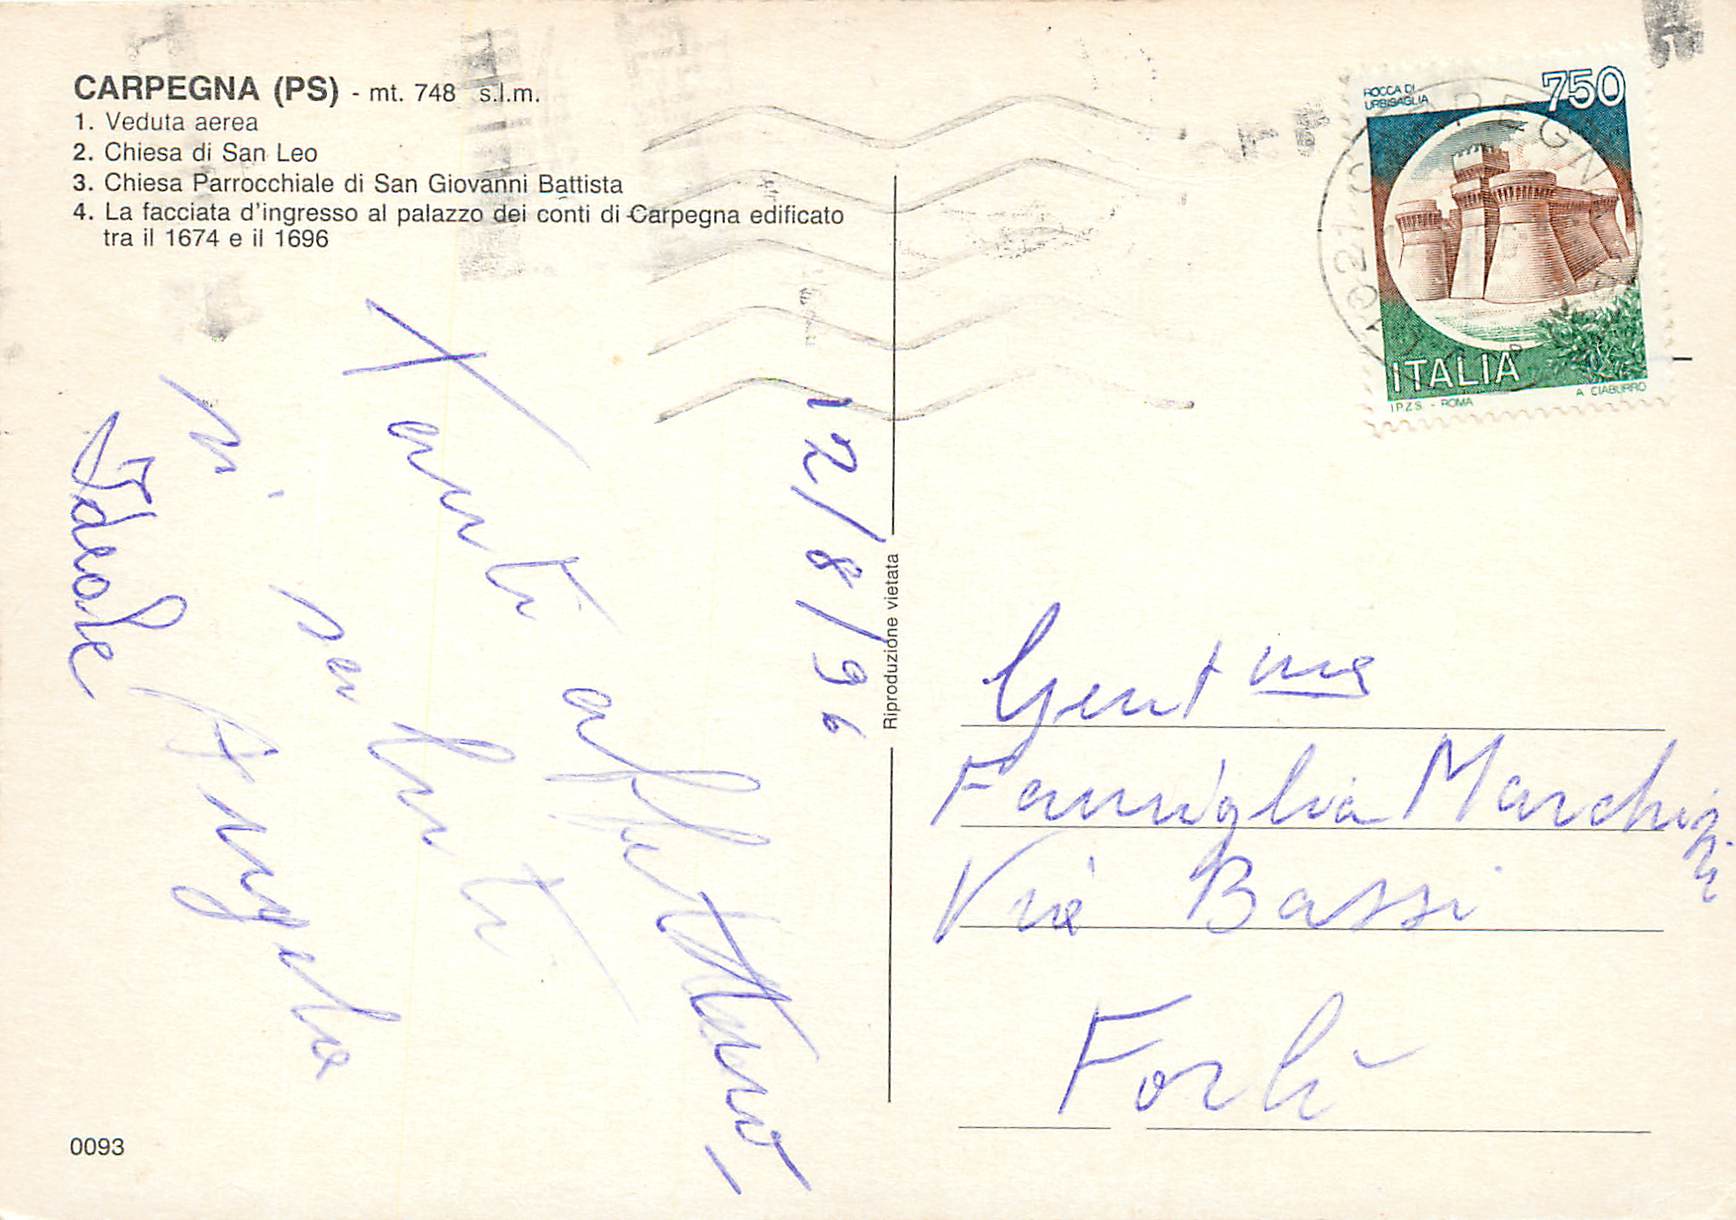 CARPEGNA (PS) - mt. 748 s.l.m.
1. Veduta aerea
2. Chiesa di San Leo
3. Chiesa Parrocchiale di San Giovanni Battista
4. La facciata d'ingresso al palazzo dei conti di Carpegna edificato
tra il 1674 e il 1696
12/8/96
Tanti affettuosi
saluti
Angela
Ideale
0093
Riproduzione vietata
ROCCA DI
URBISAGLIA
750
ITALIA
I.P.Z.S. - ROMA
A. CIABURRO
61021 CARPEGNA
Gent.me
Famiglia Marchi
Via Bassi
Forlì